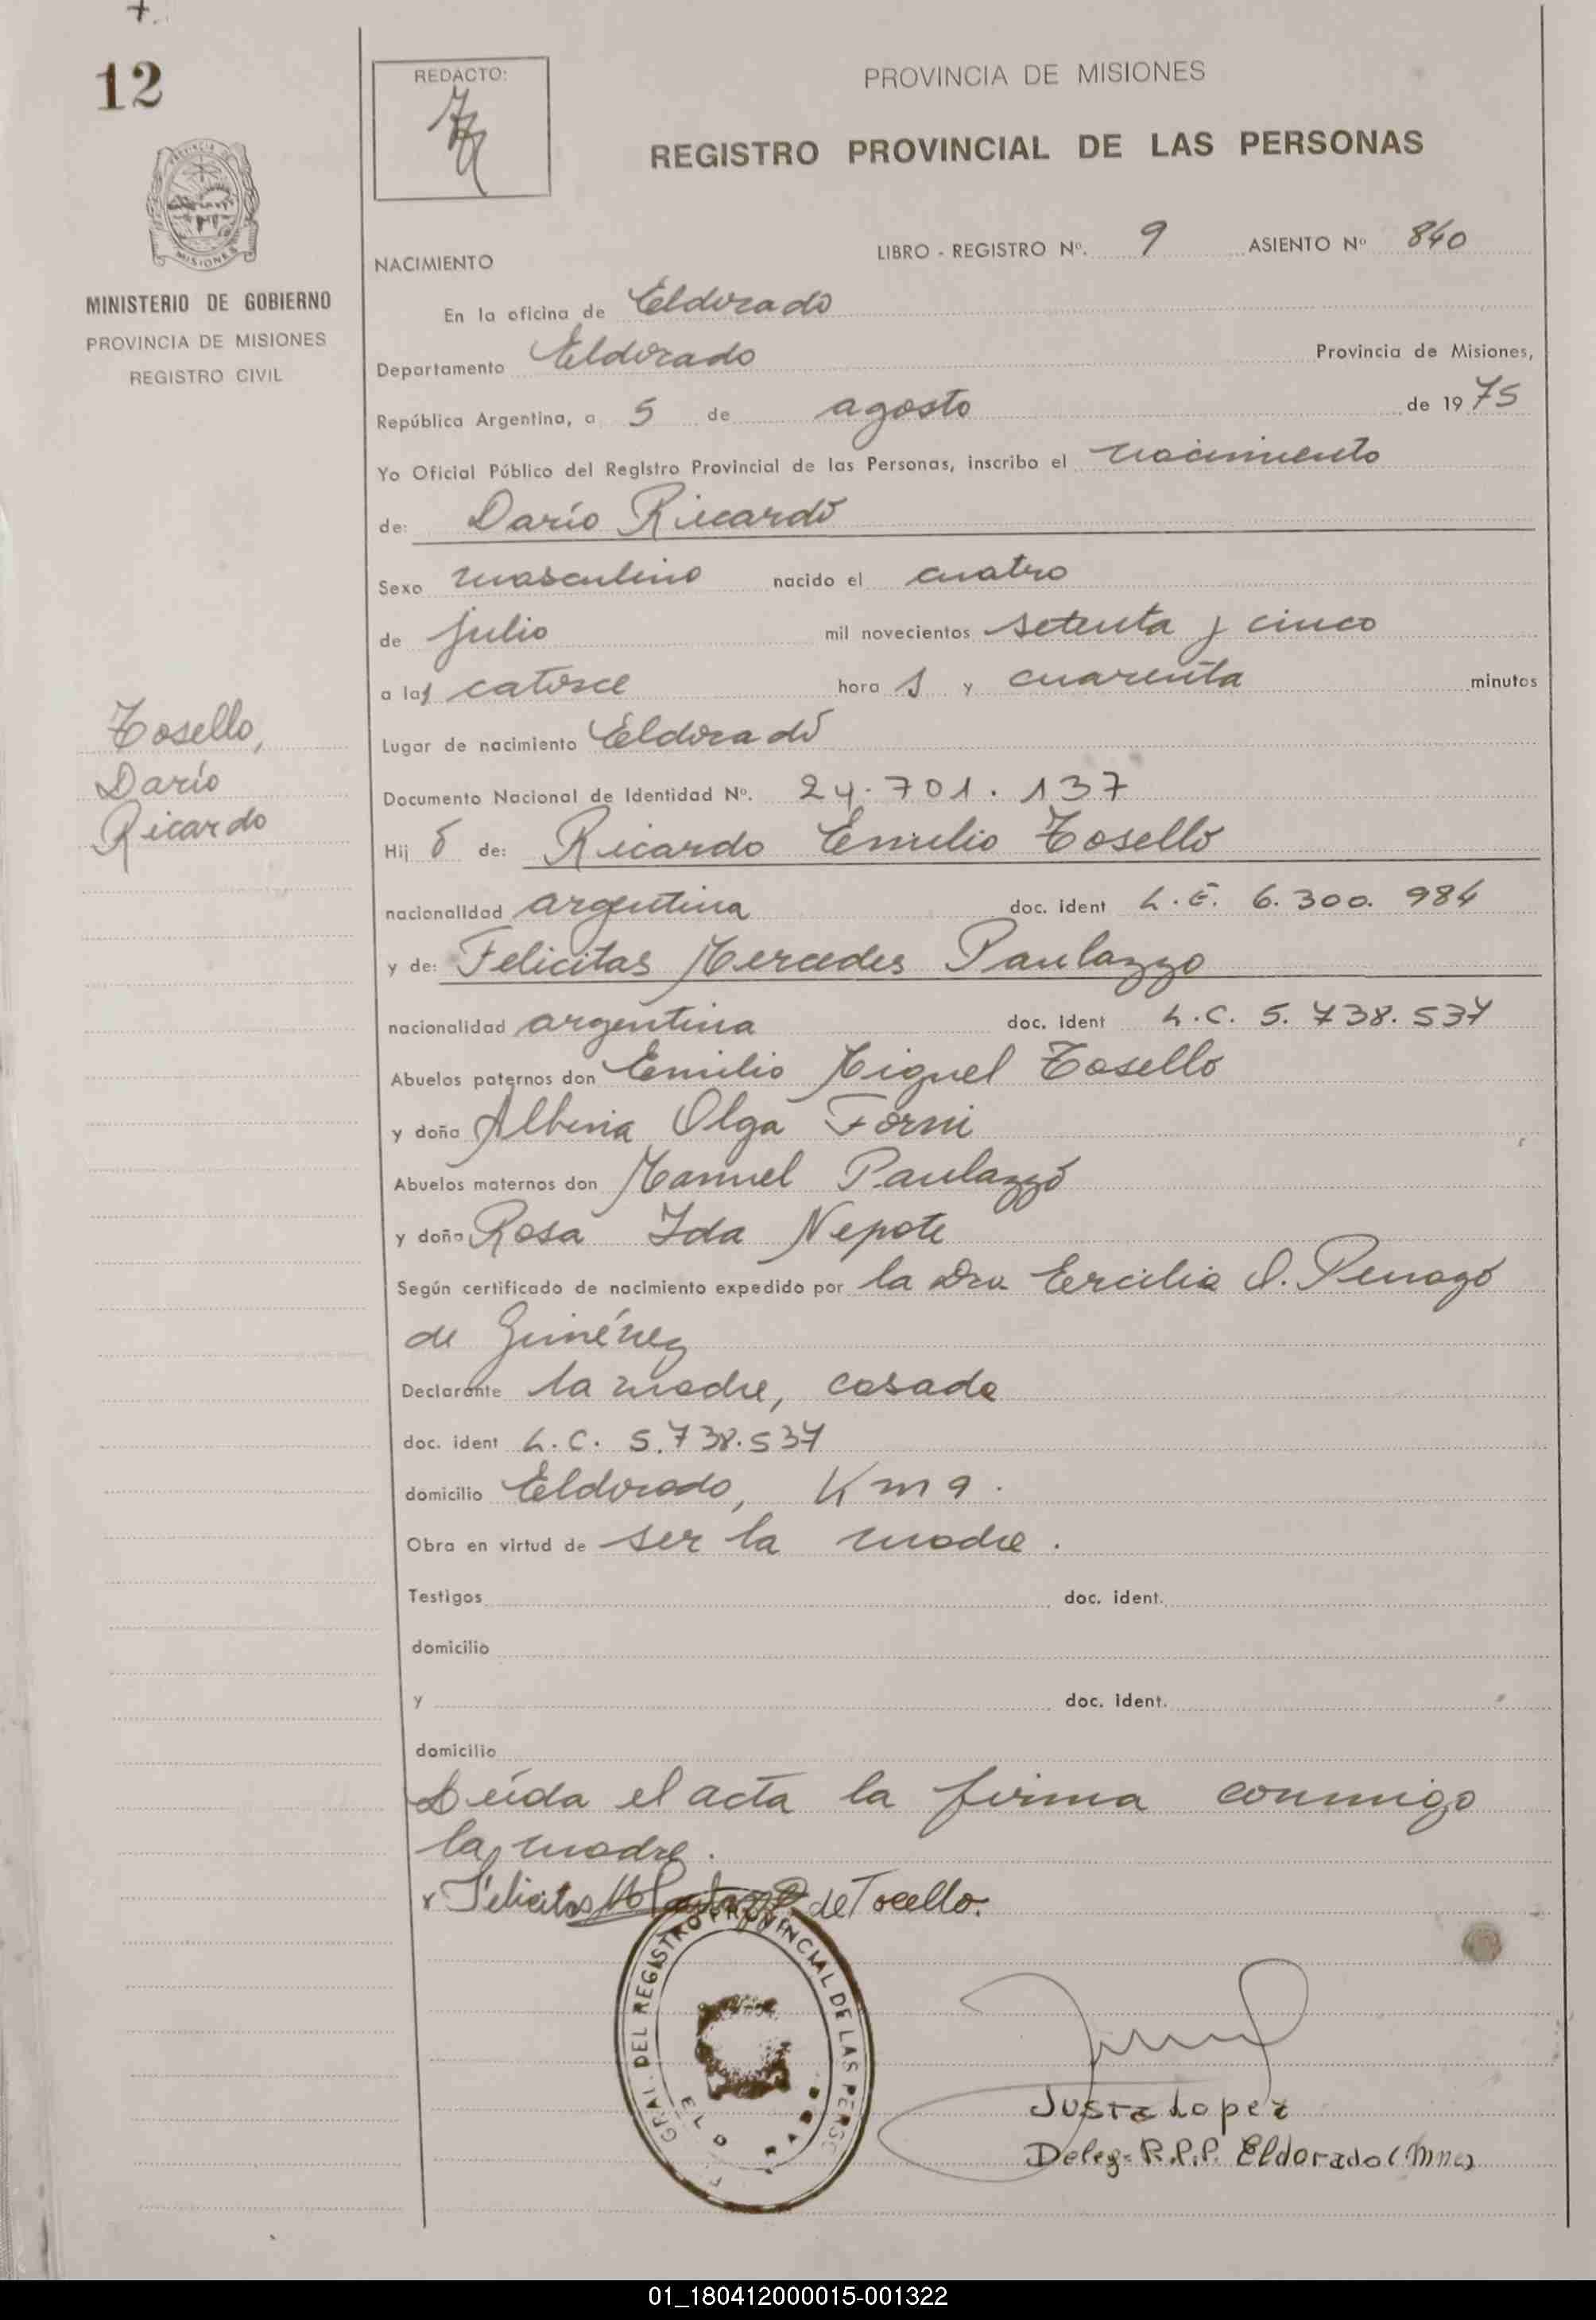 12
REDACTO:
PROVINCIA DE MISIONES
REGISTRO PROVINCIAL DE LAS PERSONAS
MISIONES
MINISTERIO DE GOBIERNO
PROVINCIA DE MISIONES
REGISTRO CIVIL
Tosello,
Darío
Ricardo
LIBRO - REGISTRO Nº. 9 ASIENTO Nº 840
NACIMIENTO
En la oficina de Eldorado
Departamento Eldorado Provincia de Misiones,
República Argentina, a 5 de agosto de 1975
Yo Oficial Público del Registro Provincial de las Personas, inscribo el nacimiento
de: Darío Ricardo
Sexo masculino nacido el cuatro
de julio mil novecientos setenta y cinco
a las catorce hora s y cuarenta minutos
Lugar de nacimiento Eldorado
Documento Nacional de Identidad Nº. 24.701.137
Hij o de: Ricardo Emilio Tosello
nacionalidad argentina doc. ident L.E. 6.300.984
y de: Felicitas Mercedes Paulazzo
nacionalidad argentina doc. ident L.C. 5.738.537
Abuelos paternos don Emilio Miguel Tosello
y doña Albina Olga Forni
Abuelos maternos don Manuel Paulazzo
y doña Rosa Ida Nepote
Según certificado de nacimiento expedido por la Dra Ercilia
de Giménez
Declarante la madre, casada
doc. ident L.C. 5.738.537
domicilio Eldorado, Km 9.
Obra en virtud de ser la madre.
Testigos doc. ident.
domicilio
y doc. ident.
domicilio
Leída el acta la firma conmigo
la madre.
x Felicitas M de Tosello.
GRAL. DEL REGISTRO PROVINCIAL DE LAS PERSO
Justa Lopez
Deleg. R.P.P. Eldorado (Mnes)
01_180412000015-001322